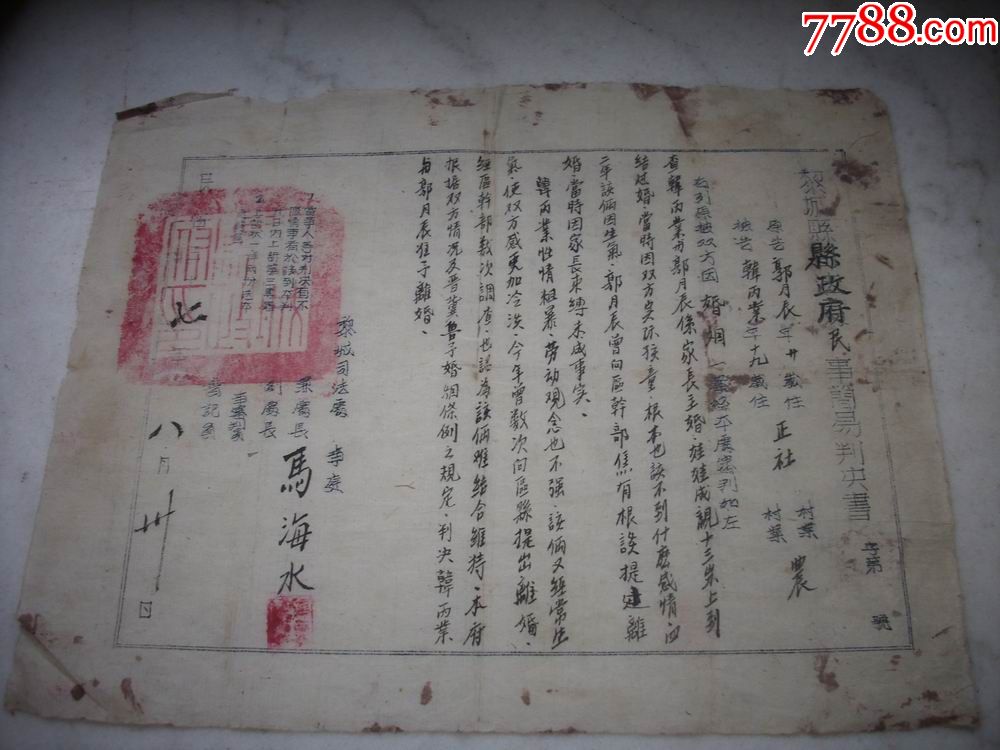 7788.com
中国收藏热线
黎城县縣政府民事簡易判決書
字第 號
原告 郭月辰 年 廿 歲住 正社 村業 農
被告 韓丙業 年 十九 歲住 村業
右列原被双方因 婚姻 一案經本處審判如左
查韓丙業与郭月辰係家長主婚、娃娃成親十三岁上到
结过婚、當時因双方实际孩童、根本也谈不到什麽感情、四
二年該倆因生氣、郭月辰曾向區幹部焦有根談提过離
婚、當時因家長束縛未成事实、
韓丙業性情粗暴、劳动观念也不强、該倆又經常生
氣、使双方感更加冷淡、今年曾数次向區縣提出離婚、
經區幹部数次調查、也認為該倆难结合維持、本府
根据双方情况及晋冀鲁予婚姻條例之規定、判决韓丙業
与郭月辰准予離婚、
黎城司法處 李慶
兼處長
副處長 馬海水
書記員
七
八月卅一日